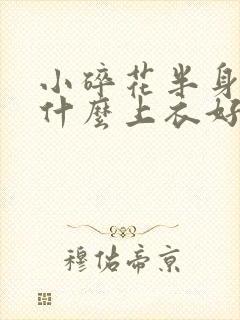 小碎花半身
什麼上衣好
穆佑帝京